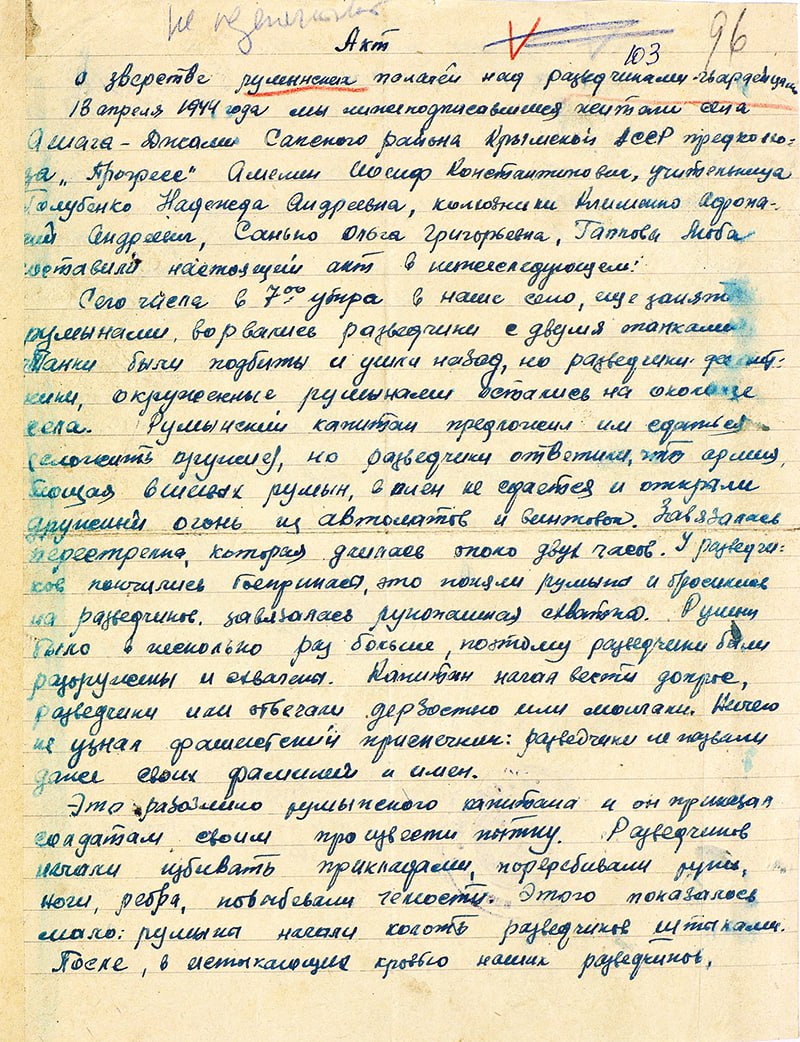 Акт
103
96
о зверстве румынских палачей над разведчиками-гвардейцами
18 апреля 1944 года мы нижеподписавшиеся жители села
Ашага-Джами Сакского района Крымской АССР предколхо-
за „Прогресс" Амелин Иосиф Константинович, учительница
Голубенко Надежда Андреевна, колхозники Клименко Афана-
сий Андреевич, Санько Ольга Григорьевна, Люба
составили настоящий акт в нижеследующем:
Сего числа в 7⁰⁰ утра в наше село, еще занят
румынами, ворвались разведчики с двумя танками
Танки были подбиты и ушли назад, но разведчики-десант-
ники, окруженные румынами остались на околице
села. Румынский капитан предложил им сдаться
(сложить оружие), но разведчики ответили, что армия,
бьющая вшивых румын, в плен не сдается и открыли
дружный огонь из автоматов и винтовок. Завязалась
перестрелка, которая длилась около двух часов. У разведчи-
ков кончились боеприпасы, это поняли румыны и бросились
на разведчиков. завязалась рукопашная схватка. Румын
было в несколько раз больше, поэтому разведчики были
разоружены и схвачены. Капитан начал вести допрос,
разведчики или отвечали дерзостью или молчали. Ничего
не узнал фашистский приспешник: разведчики не назвали
даже своих фамилий и имен.
Это разозлило румынского капитана и он приказал
солдатам своим произвести пытку. Разведчиков
начали избивать прикладами, поперебивали руки,
ноги, ребра, повыбевали челюсти. Этого показалось
мало: румыны начали колоть разведчиков штыками.
После, в истекающих кровью наших разведчиков,